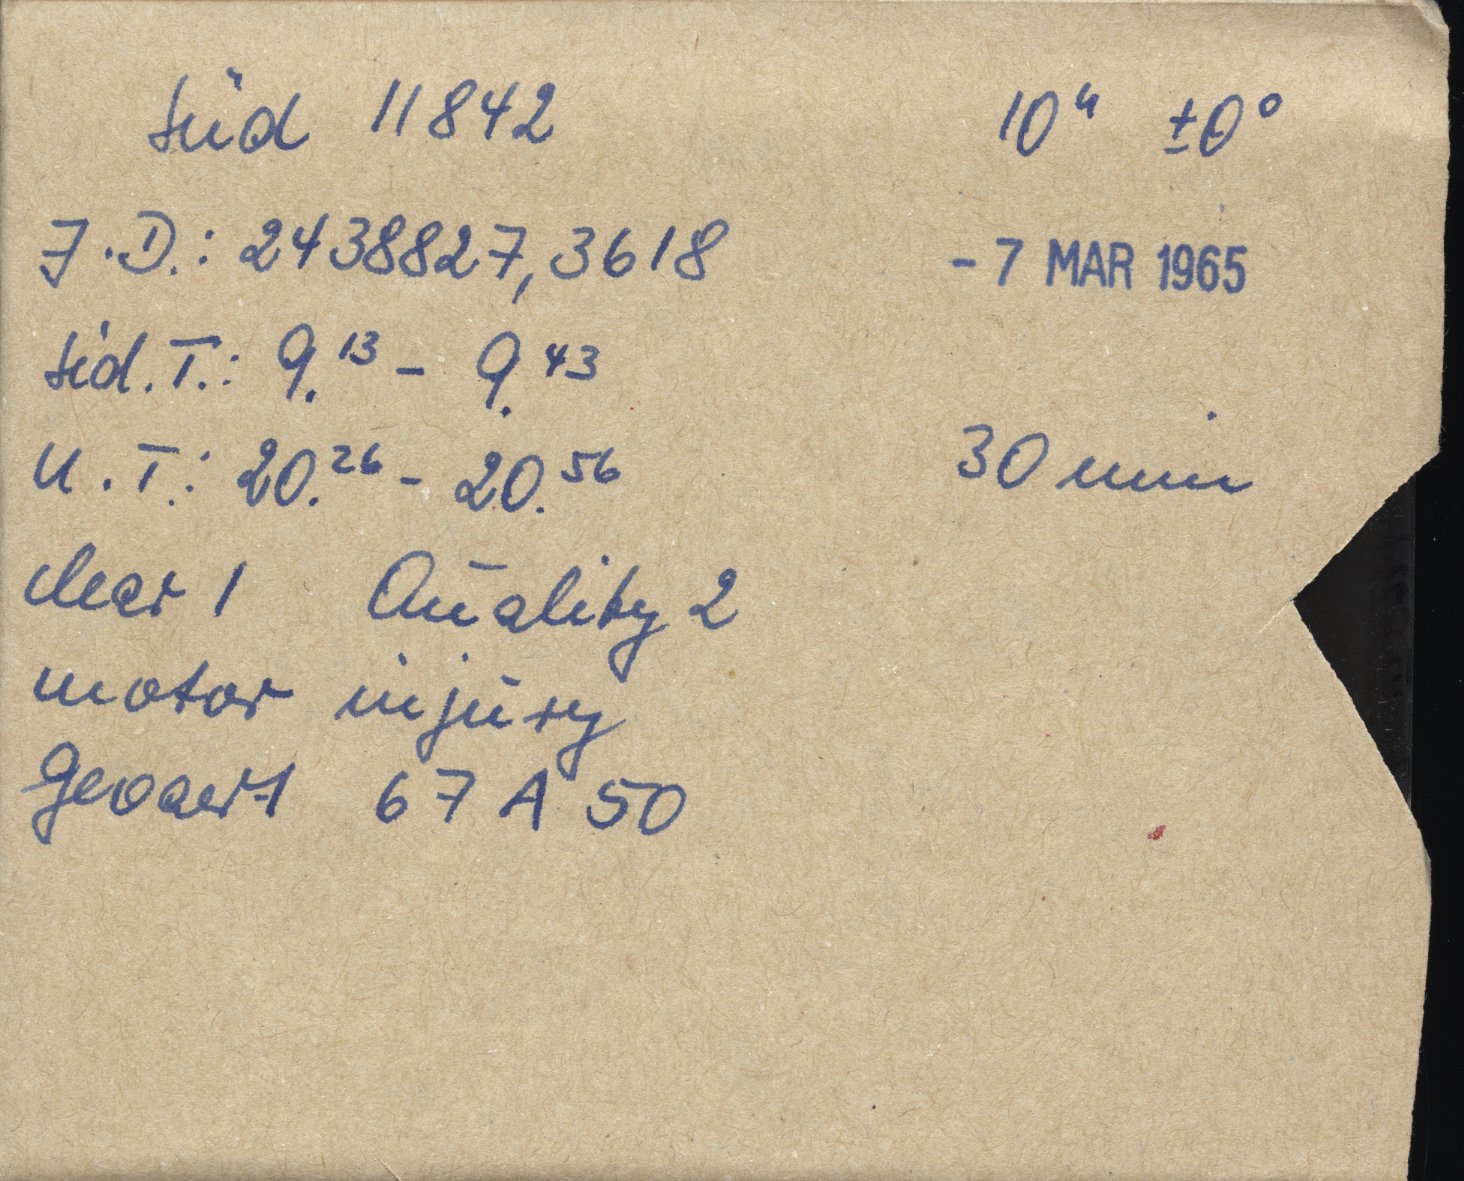 Süd 11842 10ʰ ±0°
J.D.: 2438827,3618 - 7 MAR 1965
Sid.T.: 9.¹³ - 9.⁴³
U.T.: 20.²⁶ - 20.⁵⁶ 30 min
clear 1 Quality 2
motor injury
Gevaert 67 A 50